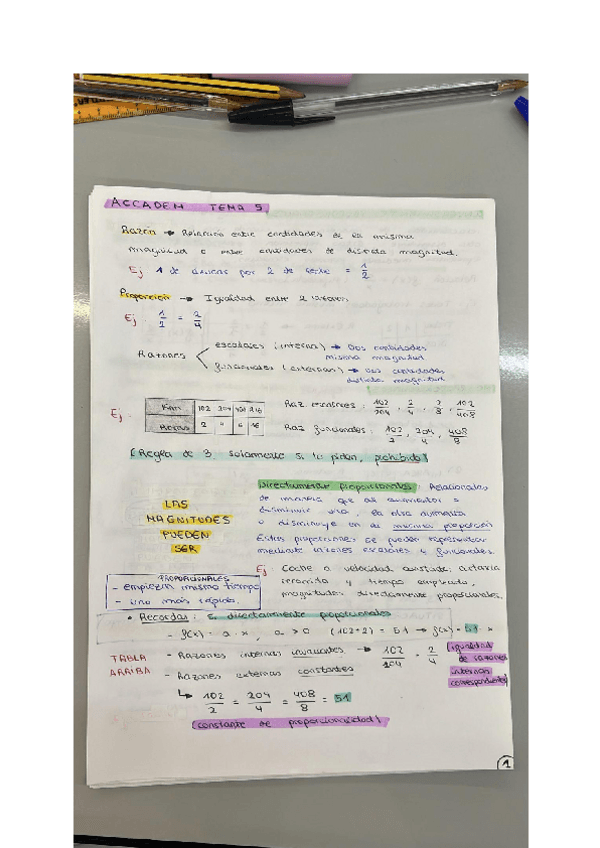 ACCADEM TEMA 5
Razón → Relación entre cantidades de la misma
magnitud o entre cantidades de distinta magnitud.
Ej 1 de azúcar por 2 de leche = 1/2
Proporción → Igualdad entre 2 razones
Ej: 1/2 = 2/4
Razones
escalares (internas) → Dos cantidades
misma magnitud
funcionales (externas) → Dos cantidades
distinta magnitud
Ej:
Km 102 204
Horas 2 4
Raz escalares: 102/204, 2/4, 2/8, 102/408
Raz funcionales: 102/2, 204/4, 408/8
(Regla de 3, solamente si lo piden, prohibido)
Directamente proporcionales: Relacionadas
de manera que al aumentar o
disminuir una, la otra aumenta
o disminuye en la misma proporción
Estas proporciones se pueden representar
mediante razones escalares o funcionales.
LAS
MAGNITUDES
PUEDEN
SER
Ej: Coche a velocidad constante, distancia
recorrida y tiempo empleado,
magnitudes directamente proporcionales.
PROPORCIONALES
- empiezan mismo tiempo
- uno más rápido
• Recordas: Si directamente proporcionales
- f(x) = a · x, a > 0 (102÷2) = 51 → f(x) = 51 · x
TABLA
ARRIBA
- Razones internas invariantes → 102/204 = 2/4
(igualdad
de razones
internas
correspondientes)
- Razones externas constantes
↳ 102/2 = 204/4 = 408/8 = 51
(constante de proporcionalidad)
1